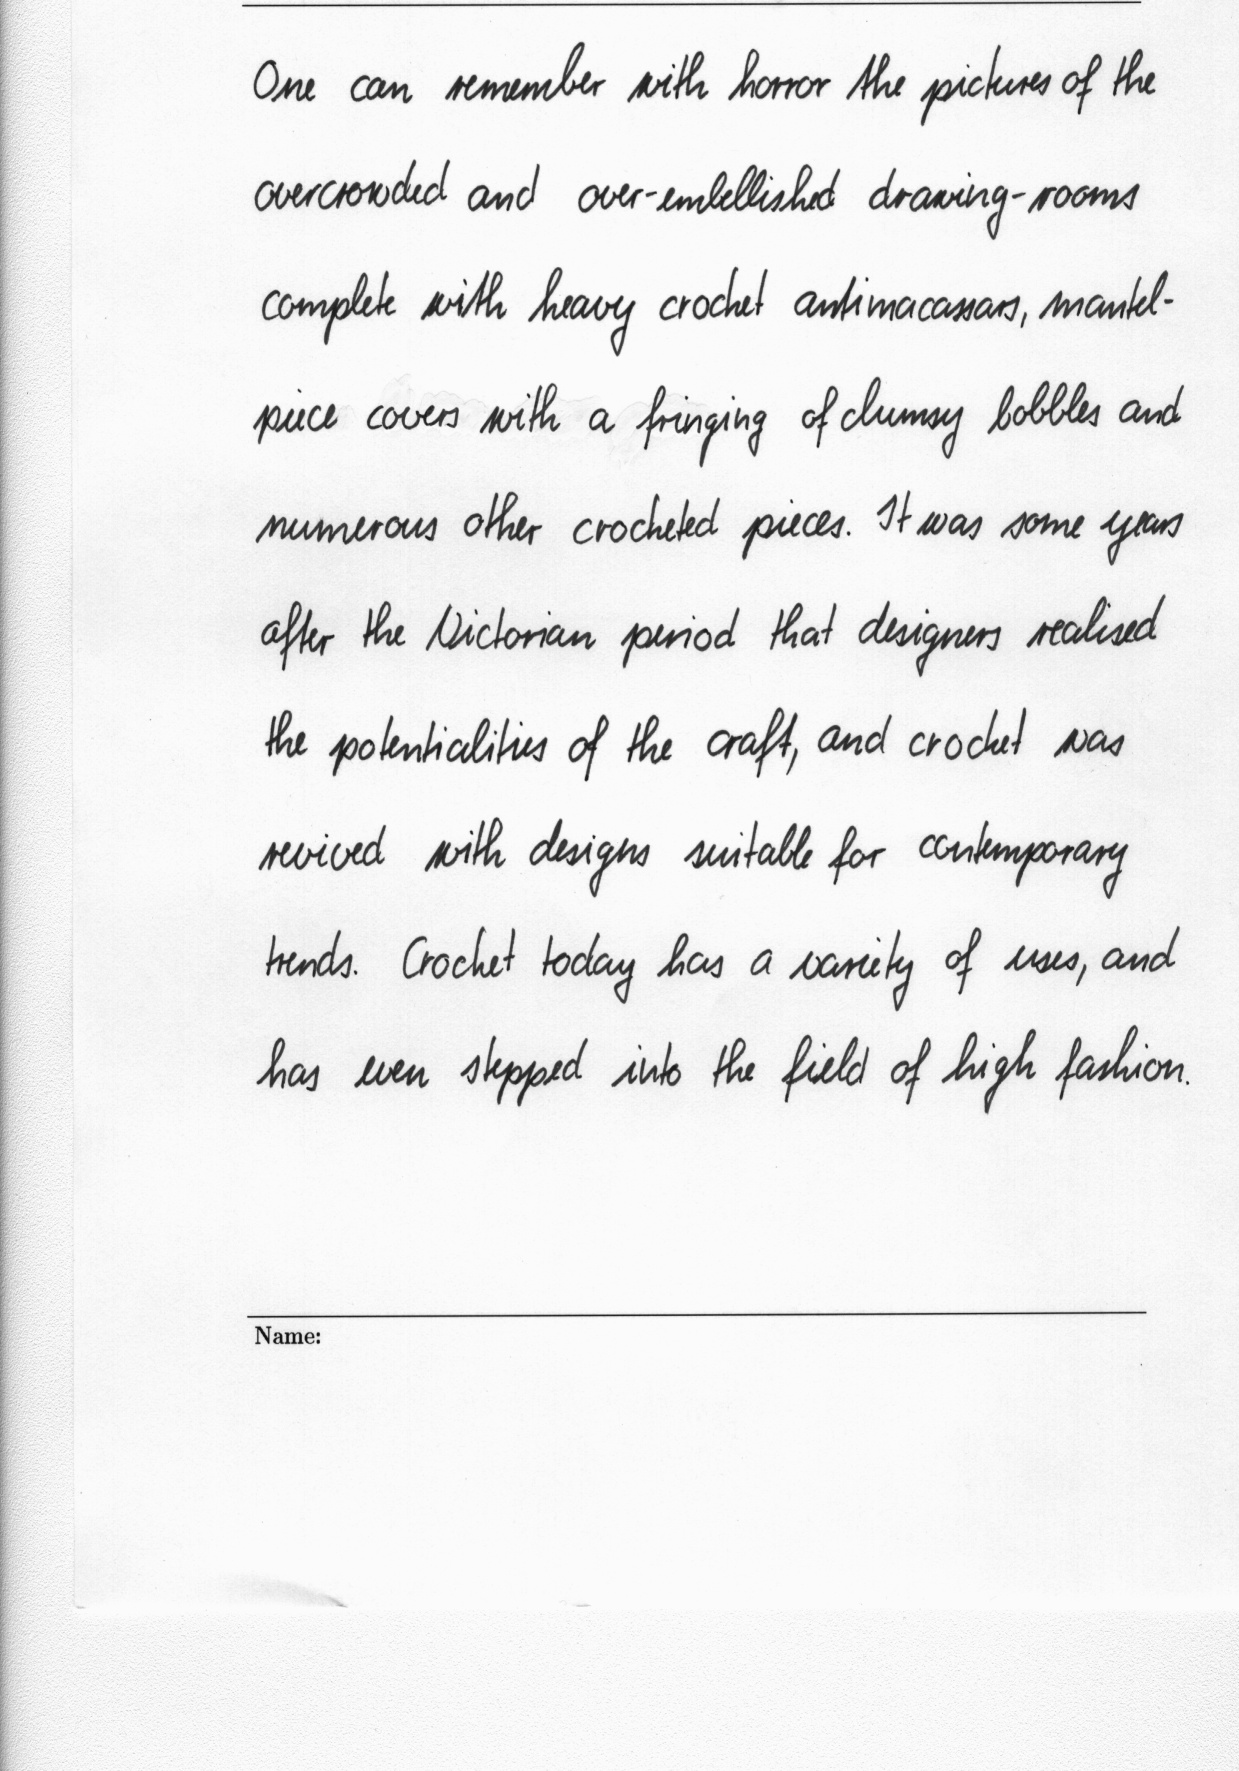 One can remember with horror the pictures of the
overcrowded and over-embellished drawing-rooms
complete with heavy crochet antimacassars, mantel-
piece covers with a fringing of clumsy bobbles and
numerous other crocheted pieces. It was some years
after the Victorian period that designers realised
the potentialities of the craft, and crochet was
revived with designs suitable for contemporary
trends. Crochet today has a variety of uses, and
has even stepped into the field of high fashion.
Name: